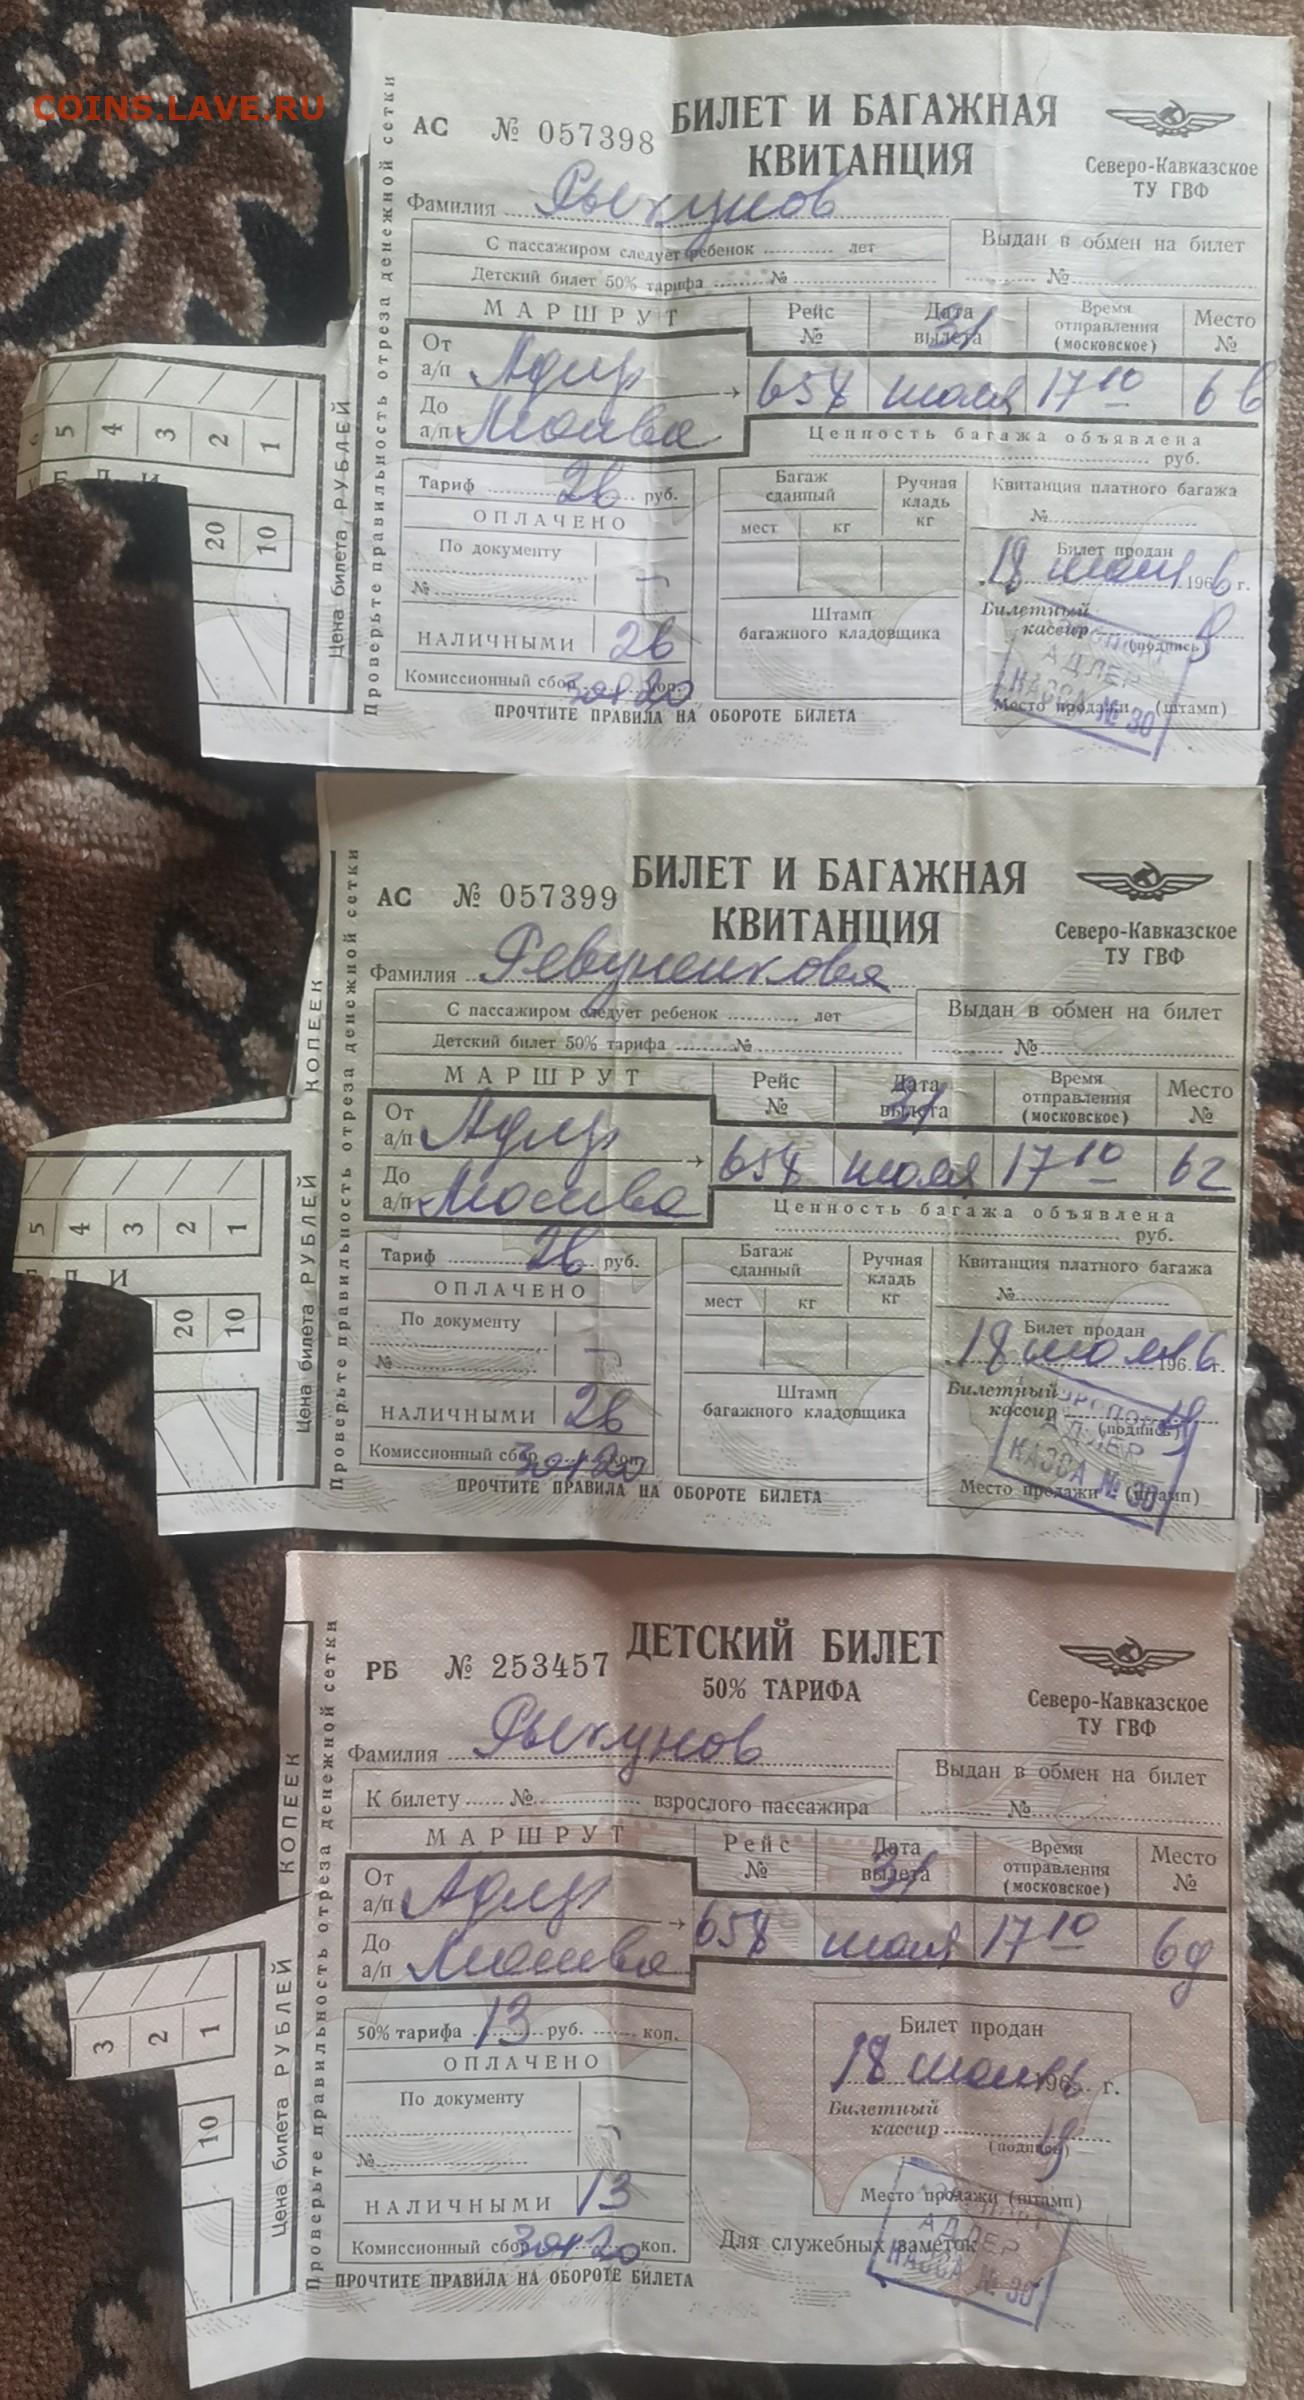 COINS.LAVE.RU
БИЛЕТ И БАГАЖНАЯ
КВИТАНЦИЯ
АС № 057398
Северо-Кавказское
ТУ ГВФ
Фамилия Рыхунов
С пассажиром следует ребенок лет
Детский билет 50% тарифа №
Выдан в обмен на билет
№
МАРШРУТ
Рейс № Дата вылета Время отправления (московское) Место №
31
От а/п Адлер
До а/п Москва
658 июля 17 10 6в
Ценность багажа объявлена
руб.
Тариф 26 руб.
ОПЛАЧЕНО
По документу
№
НАЛИЧНЫМИ 26
Комиссионный сбор коп.
Багаж сданный
мест кг
Ручная кладь кг
Штамп
багажного кладовщика
Квитанция платного багажа
№
Билет продан
18 июля 1966 г.
Билетный
кассир
(подпись)
АДЛЕР
КАССА № 30
Место продажи (штамп)
ПРОЧТИТЕ ПРАВИЛА НА ОБОРОТЕ БИЛЕТА
Проверьте правильность отреза денежной сетки
Цена билета РУБЛЕЙ
5 4 3 2 1
20 10
БИЛЕТ И БАГАЖНАЯ
КВИТАНЦИЯ
АС № 057399
Северо-Кавказское
ТУ ГВФ
Фамилия Ревуненкова
С пассажиром следует ребенок лет
Детский билет 50% тарифа №
Выдан в обмен на билет
№
МАРШРУТ
Рейс № Дата вылета Время отправления (московское) Место №
31
От а/п Адлер
До а/п Москва
658 июля 17 10 6г
Ценность багажа объявлена
руб.
Тариф 26 руб.
ОПЛАЧЕНО
По документу
№
НАЛИЧНЫМИ 26
Комиссионный сбор коп.
Багаж сданный
мест кг
Ручная кладь кг
Штамп
багажного кладовщика
Квитанция платного багажа
№
Билет продан
18 июля 1966 г.
Билетный
кассир
(подпись)
АДЛЕР
КАССА № 30
Место продажи (штамп)
ПРОЧТИТЕ ПРАВИЛА НА ОБОРОТЕ БИЛЕТА
Проверьте правильность отреза денежной сетки
Цена билета РУБЛЕЙ КОПЕЕК
5 4 3 2 1
20 10
ДЕТСКИЙ БИЛЕТ
50% ТАРИФА
РБ № 253457
Северо-Кавказское
ТУ ГВФ
Фамилия Рыхунов
К билету № взрослого пассажира
Выдан в обмен на билет
№
МАРШРУТ
Рейс № Дата вылета Время отправления (московское) Место №
31
От а/п Адлер
До а/п Москва
658 июля 17 10 6д
50% тарифа 13 руб. коп.
ОПЛАЧЕНО
По документу
№
НАЛИЧНЫМИ 13
Комиссионный сбор коп.
Билет продан
18 июля 1966 г.
Билетный
кассир
(подпись)
Место продажи (штамп)
Для служебных заметок
АДЛЕР
КАССА № 30
ПРОЧТИТЕ ПРАВИЛА НА ОБОРОТЕ БИЛЕТА
Проверьте правильность отреза денежной сетки
Цена билета РУБЛЕЙ КОПЕЕК
3 2 1
10